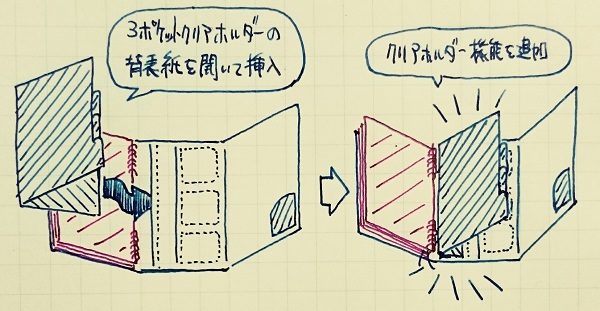 3ポケットクリアホルダーの
背表紙を開いて挿入
クリアホルダー機能を追加